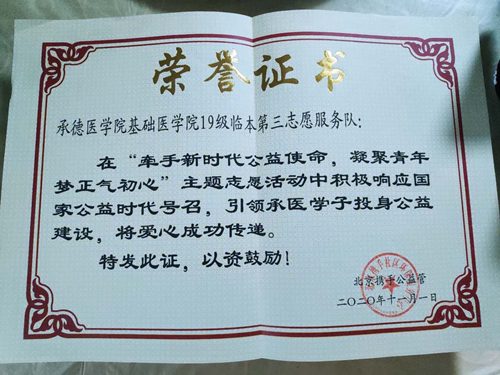 荣誉证书
承德医学院基础医学院19级临本第三志愿服务队：
在“牵手新时代公益使命，凝聚青年
梦正气初心”主题志愿活动中积极响应国
家公益时代号召，引领承医学子投身公益
建设，将爱心成功传递。
特发此证，以资鼓励！
北京携手公益管
二〇二〇年十一月一日